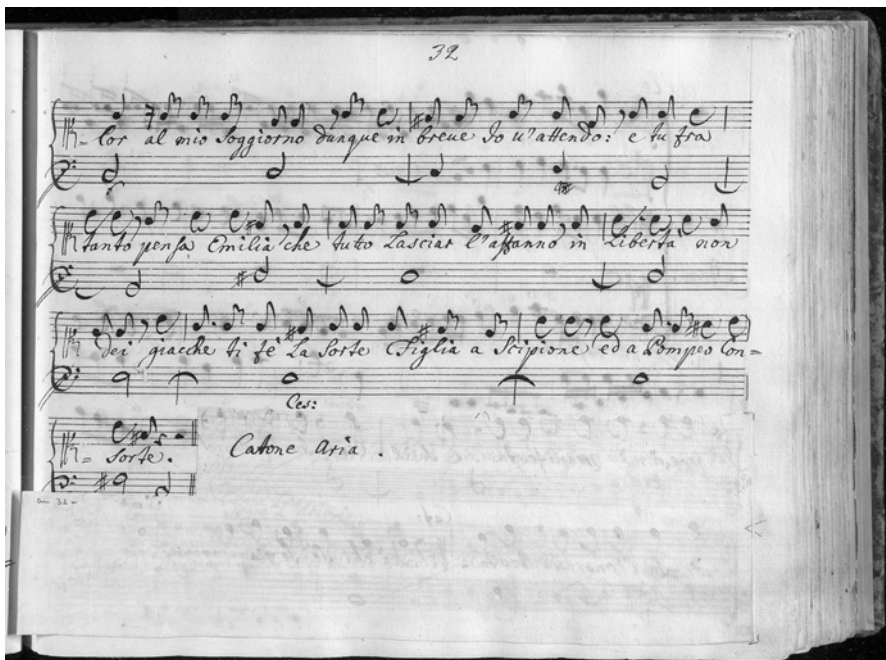 32
- lor al mio soggiorno dunque in breve Io v'attendo: e tu fra
tanto pensa Emilia che tutto Lasciar l'affanno in Libertà non
dei giacche ti fè La Sorte Figlia a Scipione ed a Pompeo Con=
Ces:
= sorte. Catone Aria.